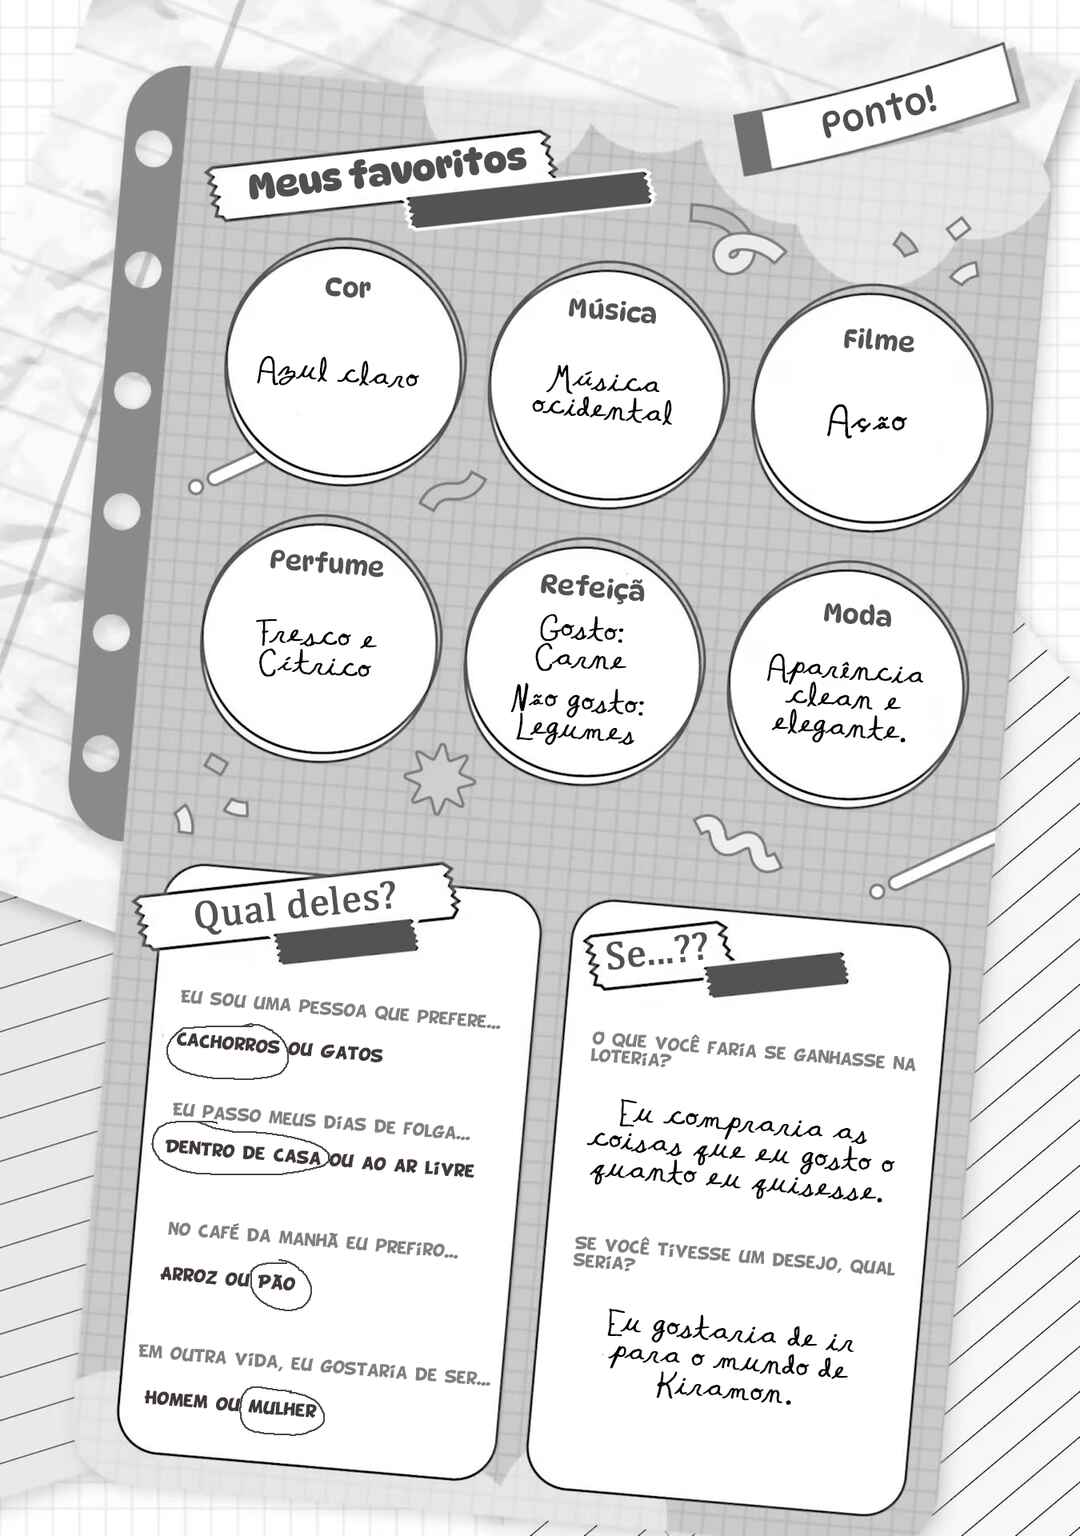 Ponto!
Meus favoritos
Cor
Azul claro
Música
Música
ocidental
Filme
Ação
Perfume
Fresco e
Cítrico
Refeiçã
Gosto:
Carne
Não gosto:
Legumes
Moda
Aparência
clean e
elegante.
Qual deles?
EU SOU UMA PESSOA QUE PREFERE...
CACHORROS OU GATOS
EU PASSO MEUS DIAS DE FOLGA...
DENTRO DE CASA OU AO AR LIVRE
NO CAFÉ DA MANHÃ EU PREFIRO...
ARROZ OU PÃO
EM OUTRA VIDA, EU GOSTARIA DE SER...
HOMEM OU MULHER
Se...??
O QUE VOCÊ FARIA SE GANHASSE NA
LOTERIA?
Eu compraria as
coisas que eu gosto o
quanto eu quisesse.
SE VOCÊ TIVESSE UM DESEJO, QUAL
SERIA?
Eu gostaria de ir
para o mundo de
Kiramon.